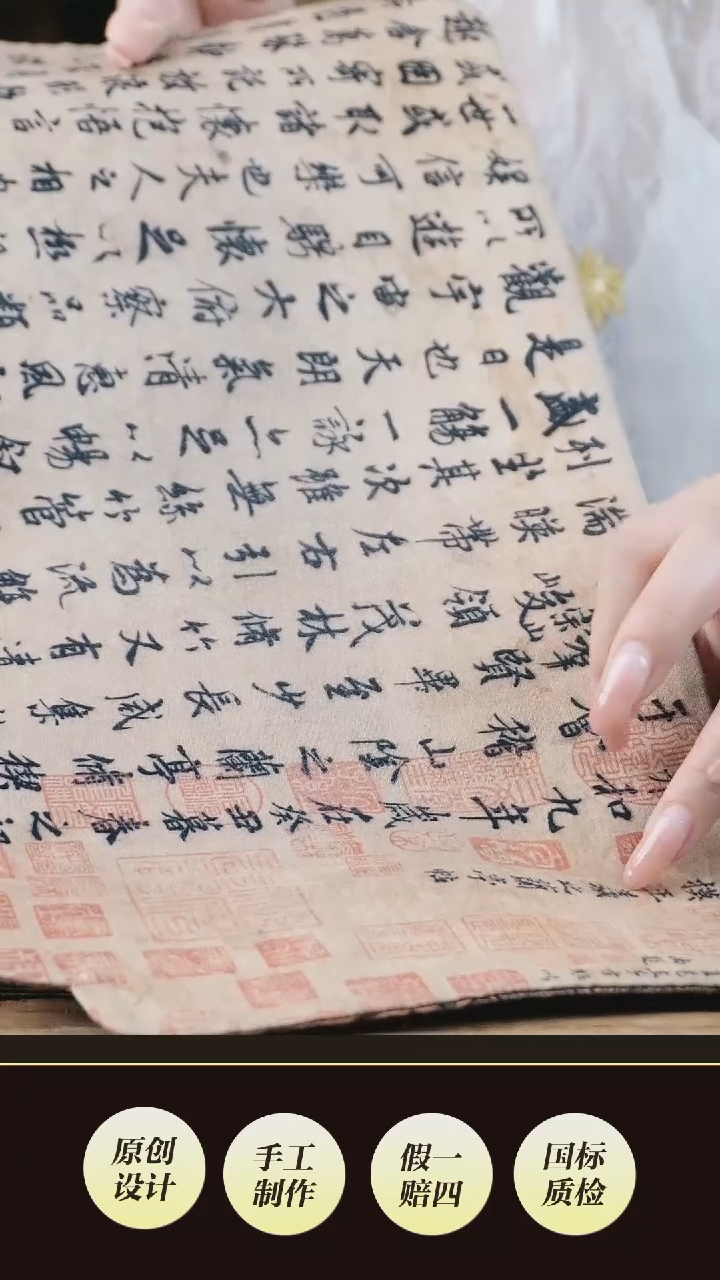 和九年歲在癸丑暮春之初
于會稽山陰之蘭亭脩禊
羣賢畢至少長咸集
峻領茂林脩竹又有清
湍暎帶左右引以為流觴
列坐其次雖無絲竹管
盛一觴一詠亦足以暢敘
是日也天朗氣清惠風
觀宇宙之大俯察品類
所以遊目騁懷足以極
娛信可樂也夫人之相
一世或取諸懷抱悟言
或因寄所託放浪
趣舍萬殊
原创
设计
手工
制作
假一
赔四
国标
质检